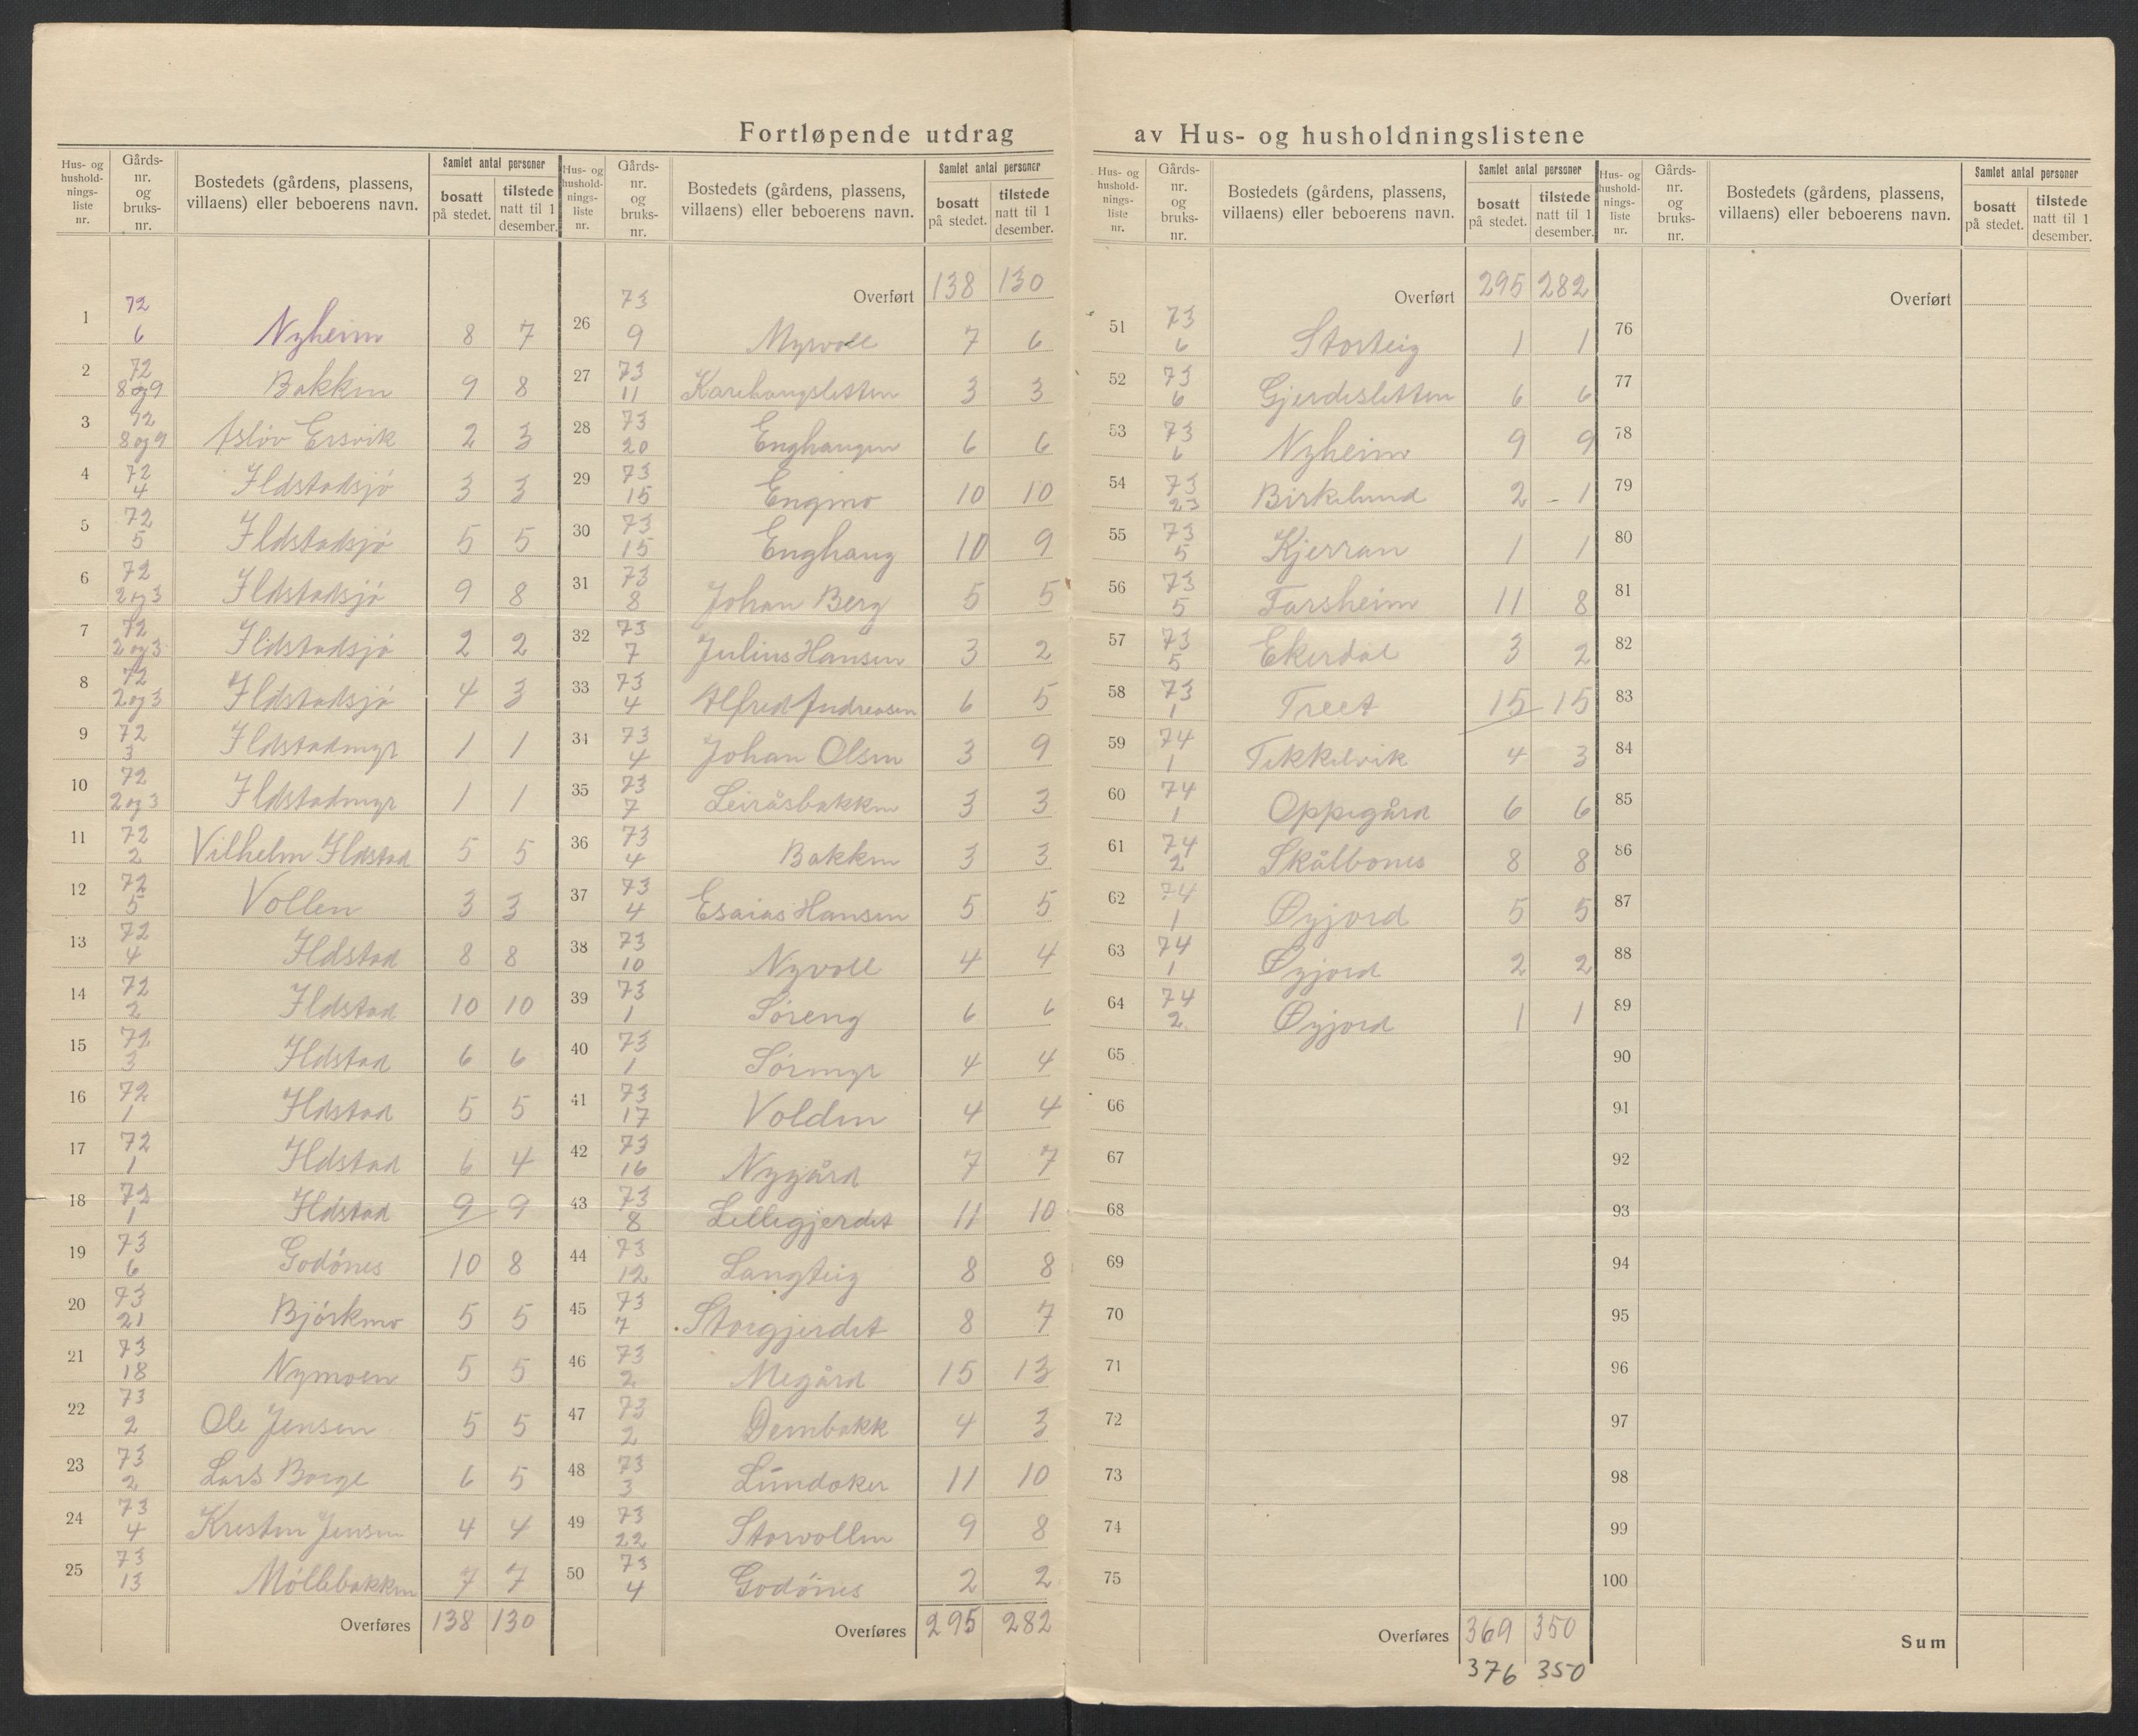 Fortløpende utdrag av Hus- og husholdningslistene
Hus- og husholdningsliste nr. | Gårds- nr. og bruks- nr. | Bostedets (gårdens, plassens, villaens) eller beboerens navn. | Samlet antal personer bosatt på stedet. | tilstede natt til 1 desember.
1 72 6 Nyheim 8 7
2 72 8 og 9 Bakken 9 8
3 72 8 og 9 Asløv Ersvik 2 3
4 72 4 Ildstadsjø 3 3
5 72 5 Ildstadsjø 5 5
6 72 2 og 3 Ildstadsjø 9 8
7 72 2 og 3 Ildstadsjø 2 2
8 72 2 og 3 Ildstadsjø 4 3
9 72 3 Ildstadmyr 1 1
10 72 2 og 3 Ildstadmyr 1 1
11 72 2 Vilhelm Ildstad 5 5
12 72 5 Vollen 3 3
13 72 4 Ildstad 8 8
14 72 2 Ildstad 10 10
15 72 3 Ildstad 6 6
16 72 1 Ildstad 5 5
17 72 1 Ildstad 6 4
18 72 1 Ildstad 9 9
19 73 6 Godønes 10 8
20 73 21 Bjørkmo 5 5
21 73 18 Nymoen 5 5
22 73 2 Ole Jensen 5 5
23 73 2 Lars Borge 6 5
24 73 4 Kresten Jensen 4 4
25 73 13 Møllebakken 7 7
Overføres 138 130
Hus- og husholdningsliste nr. | Gårds- nr. og bruks- nr. | Bostedets (gårdens, plassens, villaens) eller beboerens navn. | Samlet antal personer bosatt på stedet. | tilstede natt til 1 desember.
Overført 138 130
26 73 9 Myrvoll 7 6
27 73 11 Karihaugsletten 3 3
28 73 20 Enghaugen 6 6
29 73 15 Engmo 10 10
30 73 15 Enghaug 10 9
31 73 8 Johan Berg 5 5
32 73 7 Julius Hansen 3 2
33 73 4 Alfred Andreasen 6 5
34 73 4 Johan Olsen 3 9
35 73 7 Leiråsbakken 3 3
36 73 4 Bakken 3 3
37 73 4 Esaias Hansen 5 5
38 73 10 Nyvoll 4 4
39 73 1 Søreng 6 6
40 73 1 Sørmyr 4 4
41 73 17 Volden 4 4
42 73 16 Nygård 7 7
43 73 8 Lillegjerdet 11 10
44 73 12 Langteig 8 8
45 73 7 Storgjerdet 8 7
46 73 2 Megård 15 13
47 73 2 Dembakk 4 3
48 73 3 Lundaker 11 10
49 73 22 Storvollen 9 8
50 73 4 Godønes 2 2
Overføres 295 282
Hus- og husholdningsliste nr. | Gårds- nr. og bruks- nr. | Bostedets (gårdens, plassens, villaens) eller beboerens navn. | Samlet antal personer bosatt på stedet. | tilstede natt til 1 desember.
Overført 295 282
51 73 6 Storteig 1 1
52 73 6 Gjerdesletten 6 6
53 73 6 Nyheim 9 9
54 73 23 Birkelund 2 - 1
55 73 5 Kjerran 1 1
56 73 5 Farsheim 11 8
57 73 5 Ekerdal 3 2
58 73 1 Treet 15 15
59 74 1 Tekkelvik 4 3
60 74 1 Oppegård 6 6
61 74 2 Skålbones 8 8
62 74 1 Øyjord 5 5
63 74 1 Øyjord 2 2
64 74 2 Øyjord 1 1
65
66
67
68
69
70
71
72
73
74
75
Overføres 369 350
376 350
Hus- og husholdningsliste nr. | Gårds- nr. og bruks- nr. | Bostedets (gårdens, plassens, villaens) eller beboerens navn. | Samlet antal personer bosatt på stedet. | tilstede natt til 1 desember.
Overført
76
77
78
79
80
81
82
83
84
85
86
87
88
89
90
91
92
93
94
95
96
97
98
99
100
Sum